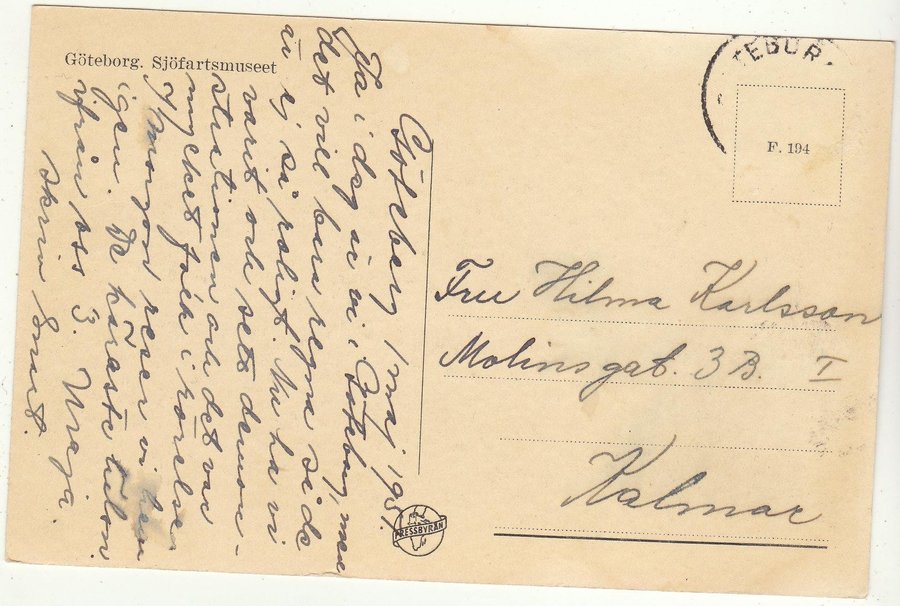 Göteborg. Sjöfartsmuseet
Göteborg 1 maj 1951.
Ja i dag är vi i Göteborg, men
det vill bara regna så de
är ej så roligt. Nu ha vi
varit och sett demon-
strationen och det var
mycket folk i rörelse
I morgon reser vi hem
igen. De käraste hälsn.
ifrån oss 3. Maja.
skriv snart.
TEBOR
F. 194
Fru Hilma Karlsson
Molinsgat. 3 B. I
Kalmar
PRESSBYRÅN